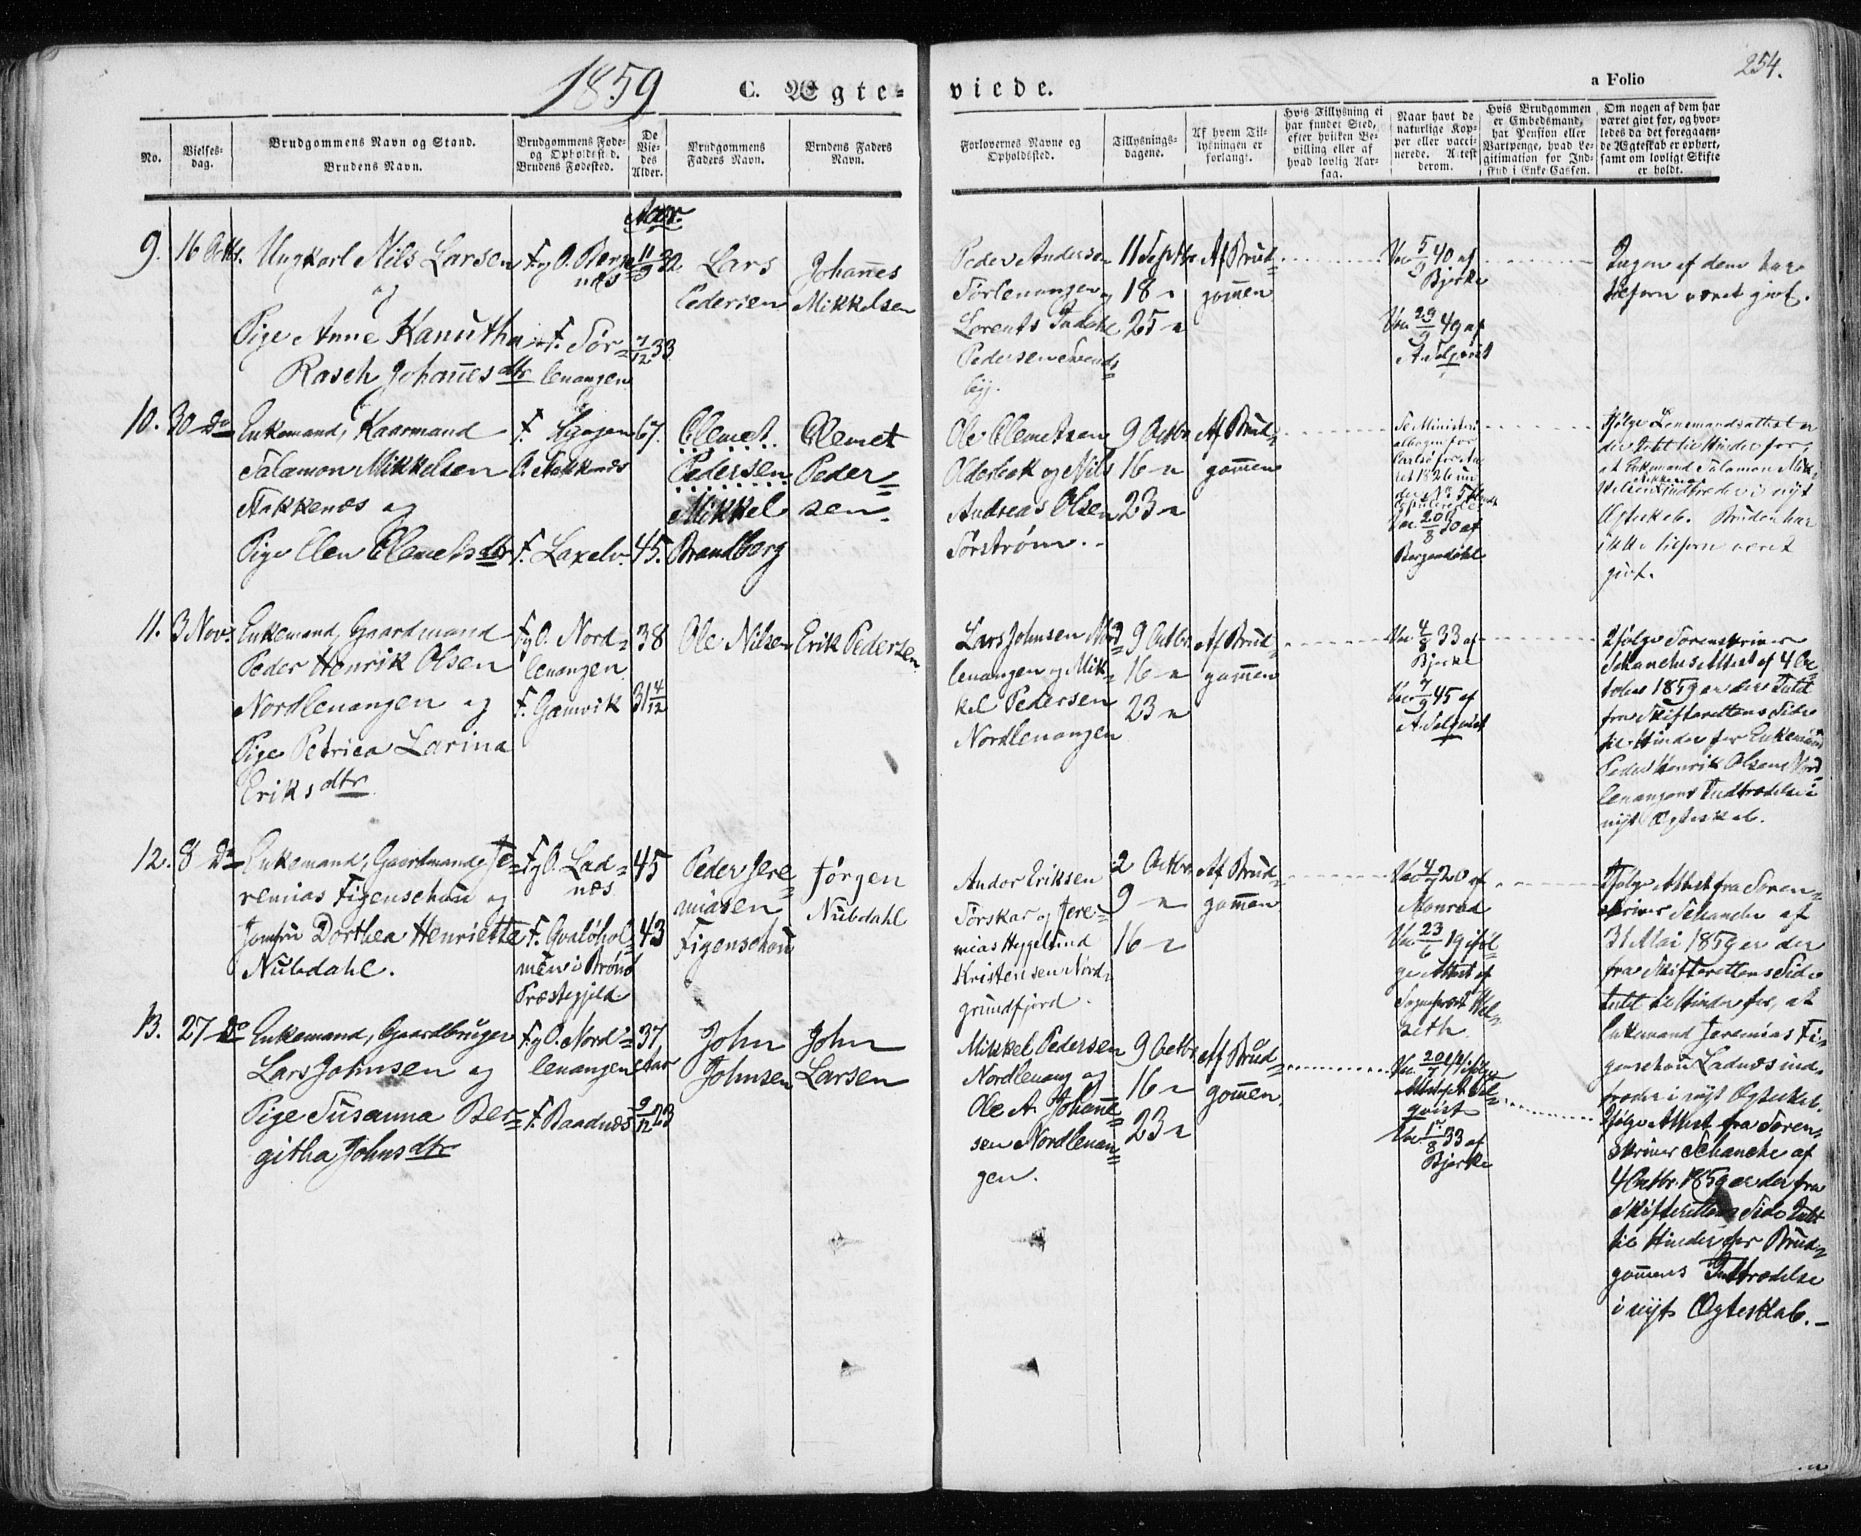 1859
C. Ægteviede.
a Folio
254.
No.
Vielsesdag.
Brudgommens Navn og Stand.
Brudens Navn.
Brudgommens Føde- og Opholdssted.
Brudens Fødested.
De Viedes Alder.
Brudgommens Faders Navn.
Brudens Faders Navn.
Forlovernes Navne og Opholdssted.
Tillysningsdagene.
Af hvem Tillysningen er forlangt.
Hvis Tillysning ei har fundet Sted, efter hvilken Bevilling eller af hvad lovlig Aarsag.
Naar havt de naturlige Kopper eller vaccinerede. Attest derom.
Hvis Brudgommen er Embedsmand, har Pension eller Vartpenge, hvad Legitimation for Indskud i Enke Cassen.
Om nogen af dem har været givt før, og hvorledes da det foregaaende Ægteskab er ophørt, samt om lovligt Skifte er holdt.
Aar.
9. 16 Octbr.
Ungkarl Nils Larsen
og
Pige Anne Kanutha
Rasch Johannesdtr
F. og O.
næs
F. Sør=
lenangen
11/9 32
7/12 33
Lars
Pedersen
Johannes
Mikkelsen
Peder Andersen
Sørlenangen og
Lorents
Pedersen Svends=
by.
11 Septbr
18 "
25 "
Af Brud=
gommen
Vac 5/9 40 af
Bjerke
Vac 29/9 49 af
A. Selqvist
Ingen af dem har
tilforn været givt.
10. 30 Do
Enkemand, Kaarmand
Salamon Mikkelsen
Stakkenæs og
Pige Elen Clemetsdtr
F. Lyngen
O. Stakknæs
F. Laxelv.
67.
45.
Clemet
Pedersen
Mikkel
Brandberg
Clemet
Peder=
sen.
Ole Clemetsen
Olderbak og Nils
Andreas Olsen
Sørstrøm.
9 Octbr
16 "
23 "
Af Brud=
gommen
Se Ministeri
albogen for
Vac 20/8 50 af
Ifølge Lensmandsattest er
der Intet til Hinder for,
at Enkemand Salamon Mik=
kelsen indtræder i nyt
Ægteskab. Bruden har
ikke tilforn været
givt.
11. 3 Nov.
Enkemand, Gaardmand
Peder Henrik Olsen
Nordlenangen og
Pige Petrica Larina
Eriksdtr
F. og O. Nord=
lenangen
F. Gamvik
38
31 4/12
Ole Nilsen
Erik Pedersen
Lars Johnsen Nord=
lenangen og Mik=
kel Pedersen
Nordlenangen
9 Octbr
16 "
23 "
Af Brud=
gommen
Vac 4/8 33 af
Bjerke
Vac 7/9 45 af
A. Selqvist
Ifølge Sorenskriver
Schanches Attest af 4 Oc
tober 1859 er der Intet
fra Skifterettens Side
til Hinder for Enkemand
Peder Henrik Olsens Nord=
lenangens Indtrædelse i
nyt Ægteskab.
12. 8 Do
Enkemand, Gaardmand Je=
remias Figenschou og
Jomfru Dorthea Henriette
Nubdahl.
F. og O. Lad=
næs
F. Qvaløhol=
men i Brønø
Præstegjeld
45
43
Peder Jere=
miasen
Figenschou
Jørgen
Nubdahl
Andor Eriksen
Sørskar og Jere=
mias Heggelund
Kristensen Nord=
grundfjord.
2 Octbr.
9 "
16 "
Af Brud=
gommen
Vac 4/7 20 af
Monrad
Vac 23/6 19 iføl
ge Attest af
Sognepræst Wel=
zeth
Ifølge Attest fra Soren=
skriver Schanche af
31 Mai 1859 er der
fra Skifterettens Side
Intet til Hinder for, at
Enkemand Jeremias Fi=
genschou Ladnæs ind=
træder i nyt Ægteskab.
13. 27 Do
Enkemand, Gaardbruger
Lars Johnsen og
Pige Susanna Ber=
githa Johnsdtr
F. og O. Nord=
lenangen
F. Baadnæs
37
Aar
9/12 23
John
Johnsen
John
Larsen
Mikkel Pedersen
Nordlenang og
Ole A. Johanne=
sen Nordlenan=
gen.
9 Octbr.
16 "
23 "
Af Brud
gommen.
Attest A. Sel=
qvist
Vac 1/8 33 af
Bjerke
Ifølge Attest fra Soren=
skriver Schanche af
4 Octbr. 1859 er der fra
Skifterettens Side Intet
til Hinder for Brud=
gommens Indtrædelse
i nyt Ægteskab.